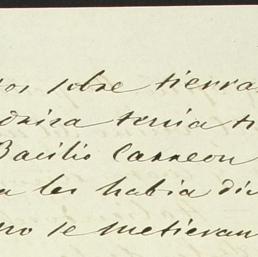 os sobre tierra
tenia t
Basilio Carreon
a les habia di
no se metieran